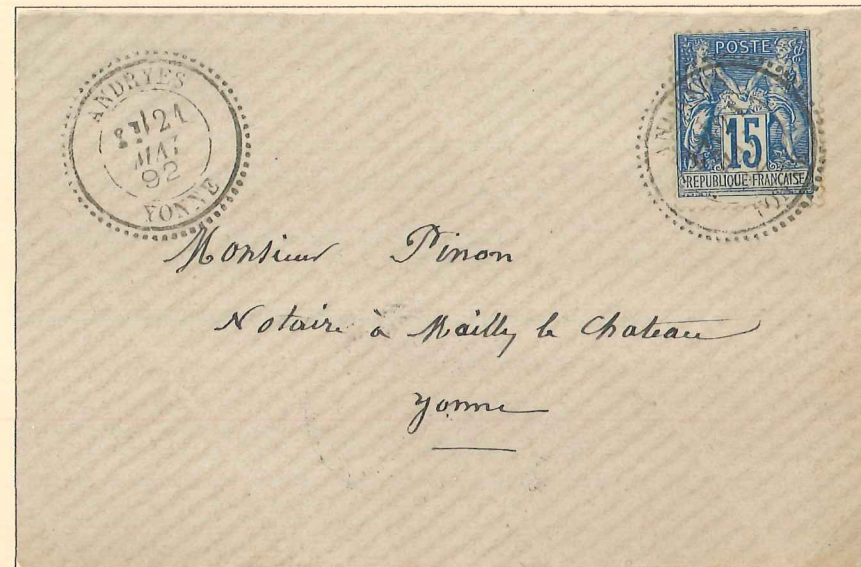 ANDRYES
21
MAI
92
YONNE
POSTE
15
REPUBLIQUE FRANÇAISE
Monsieur Pinon
Notaire à Mailly le Chateau
Yonne